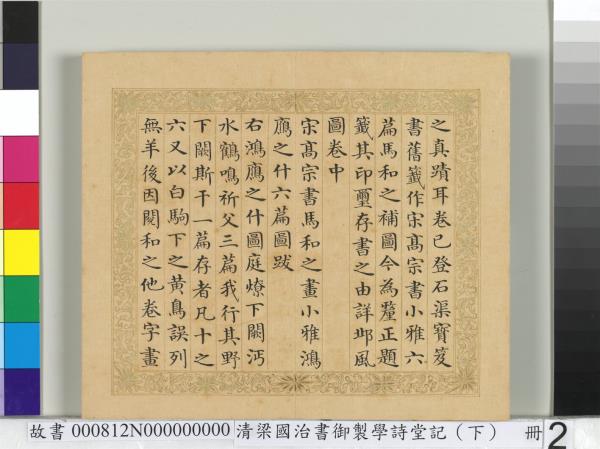 之真蹟耳卷已登石渠寳笈
書舊籤作宋髙宗書小雅六
篇馬和之補圖今為釐正題
籤其印璽存書之由詳邶風
圖卷中
宋髙宗書馬和之畫小雅鴻
鴈之什六篇圖跋
右鴻鴈之什圖庭燎下闕沔
水鶴鳴祈父三篇我行其野
下闕斯干一篇存者凡十之
六又以白駒下之黄鳥誤列
無羊後因閱和之他卷字畫
故書 000812N000000000 清梁國治書御製學詩堂記(下) 冊 2